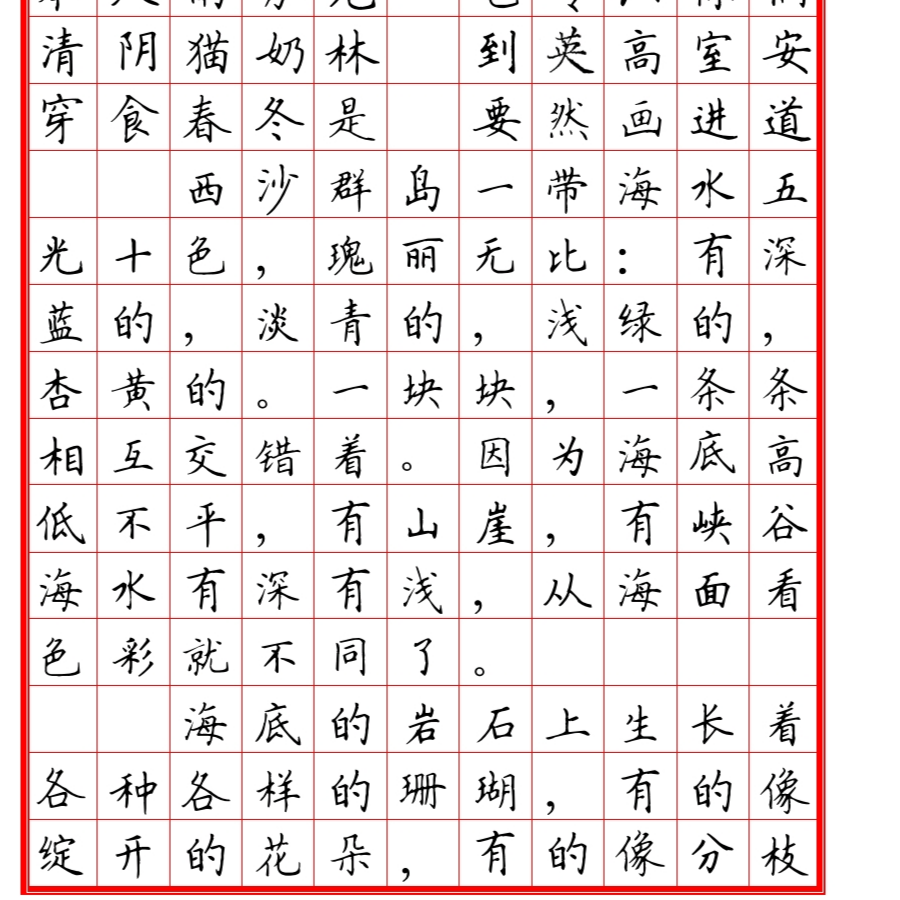 清阴猫奶林 到英高室安
穿食春冬是 要然画进道
西沙群岛一带海水五
光十色，瑰丽无比：有深
蓝的，淡青的，浅绿的，
杏黄的。一块块，一条条
相互交错着。因为海底高
低不平，有山崖，有峡谷
海水有深有浅，从海面看
色彩就不同了。
海底的岩石上生长着
各种各样的珊瑚，有的像
绽开的花朵，有的像分枝